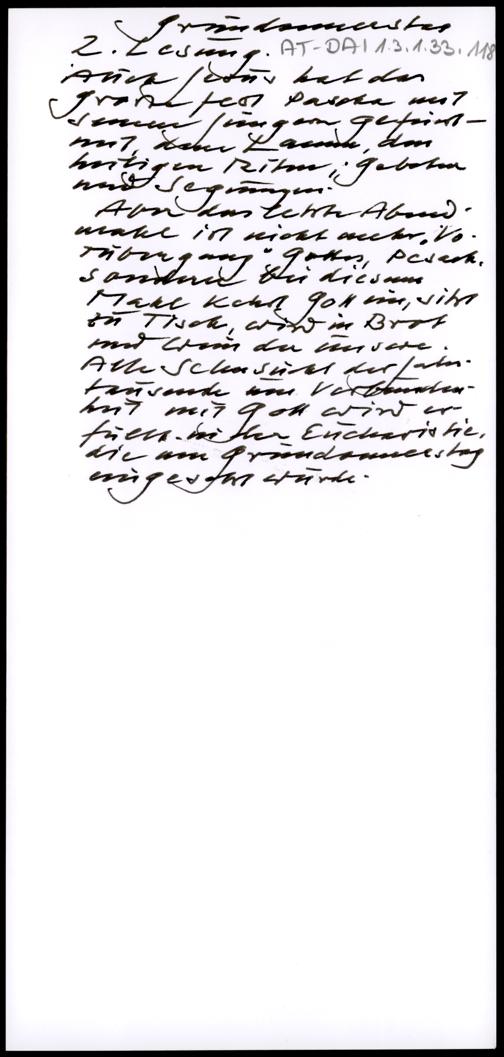 Gründonnerstag
2. Lesung. AT-DAI 1.3.1.33.118
Auch Jesus hat das
große Fest Pascha mit
seinen Jüngern gefeiert –
mit dem Lamm, den
heiligen Riten, Gebeten
und Segnungen.
Aber das letzte Abend-
mahl ist nicht mehr „Vo-
rübergang" Gottes, Pesach,
sondern bei diesem
Mahl kehrt Gott ein, sitzt
zu Tisch, wird in Brot
und Wein der unsere.
Alle Sehnsucht der Jahr-
tausende um Verbunden-
heit mit Gott wird er-
füllt in der Eucharistie,
die am Gründonnerstag
eingesetzt wurde.